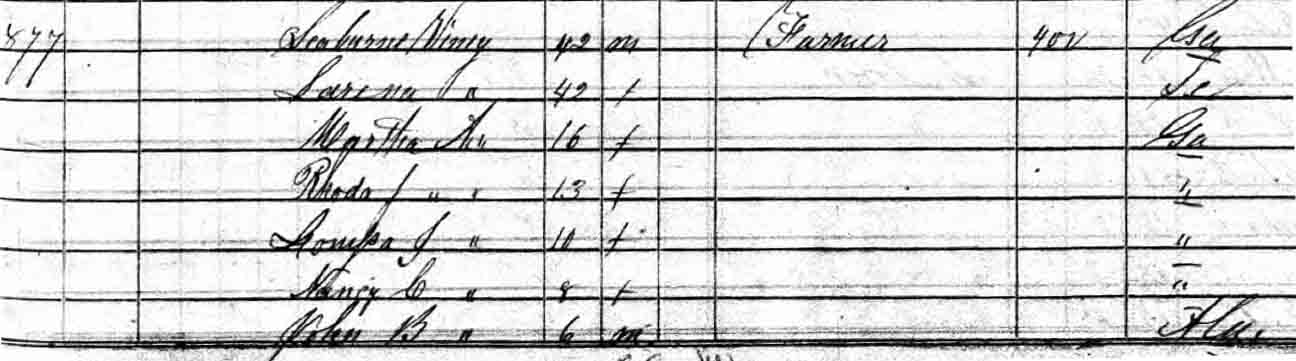 877 Seaburne Viney 42 m Farmer 400 Ga
Sarena " 42 f Sc
Martha An 16 f Ga
Rhoda J " " 13 f "
Louisa J " 10 f "
Nancy C " 8 f "
John B " 6 m Ala